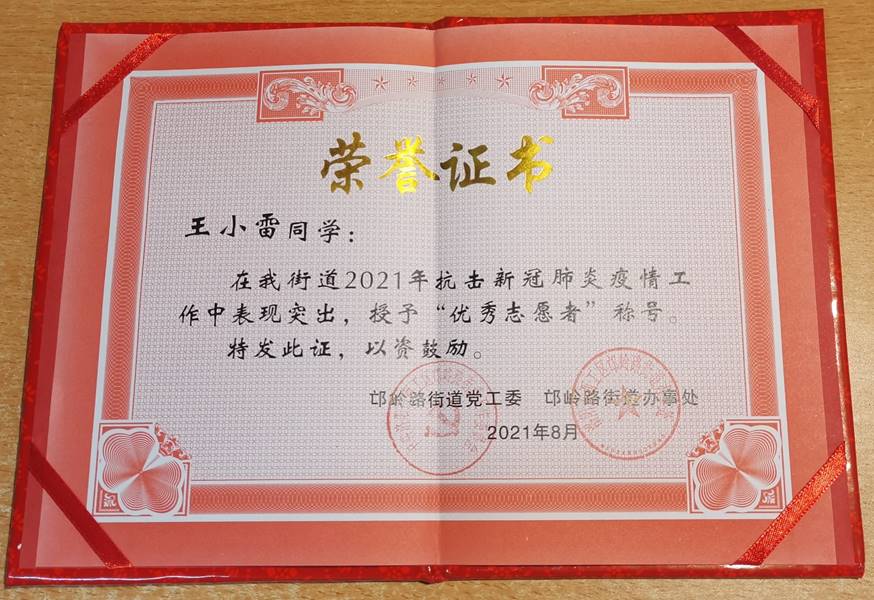 荣誉证书
王小雷同学：
在我街道2021年抗击新冠肺炎疫情工
作中表现突出，授予“优秀志愿者”称号。
特发此证，以资鼓励。
邙岭路街道党工委 邙岭路街道办事处
2021年8月